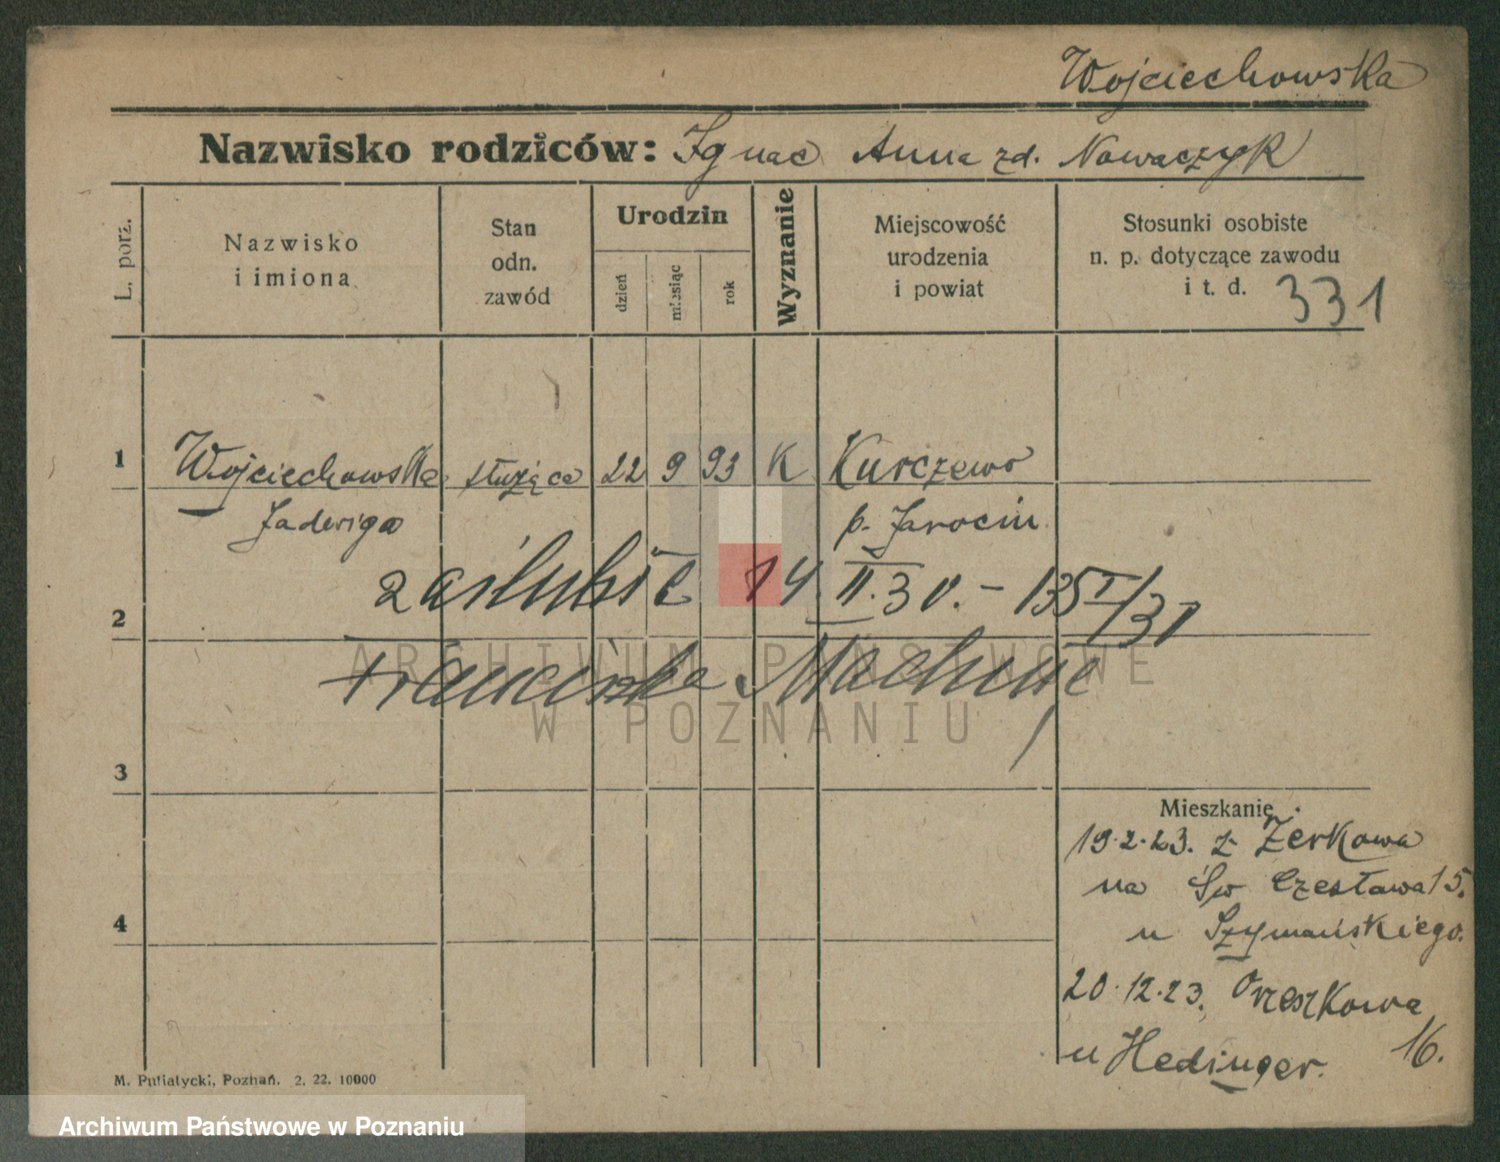 Wojciechowska
Nazwisko rodziców: Ignac Anna zd. Nowaczyk
L. porz.
Nazwisko
i imiona
Stan
odn.
zawód
Urodzin
dzień
miesiąc
rok
Wyznanie
Miejscowość
urodzenia
i powiat
Stosunki osobiste
n. p. dotyczące zawodu
i t. d.
331
1 Wojciechowska służąca 22 9 93 K Kurczewo
Jadwiga p. Jarocin
2 zaślubić 14. II. 30. - 135 I/30
Franciszka
ARCHIWUM PAŃSTWOWE
W POZNANIU
3
Mieszkanie
19.2.23. z Żerkowa
na Św Czesława 15.
u Szymańskiego.
4
20.12.23. Orzeszkowa
16.
u Hedinger.
M. Putiatycki, Poznań. 2. 22. 10000
Archiwum Państwowe w Poznaniu